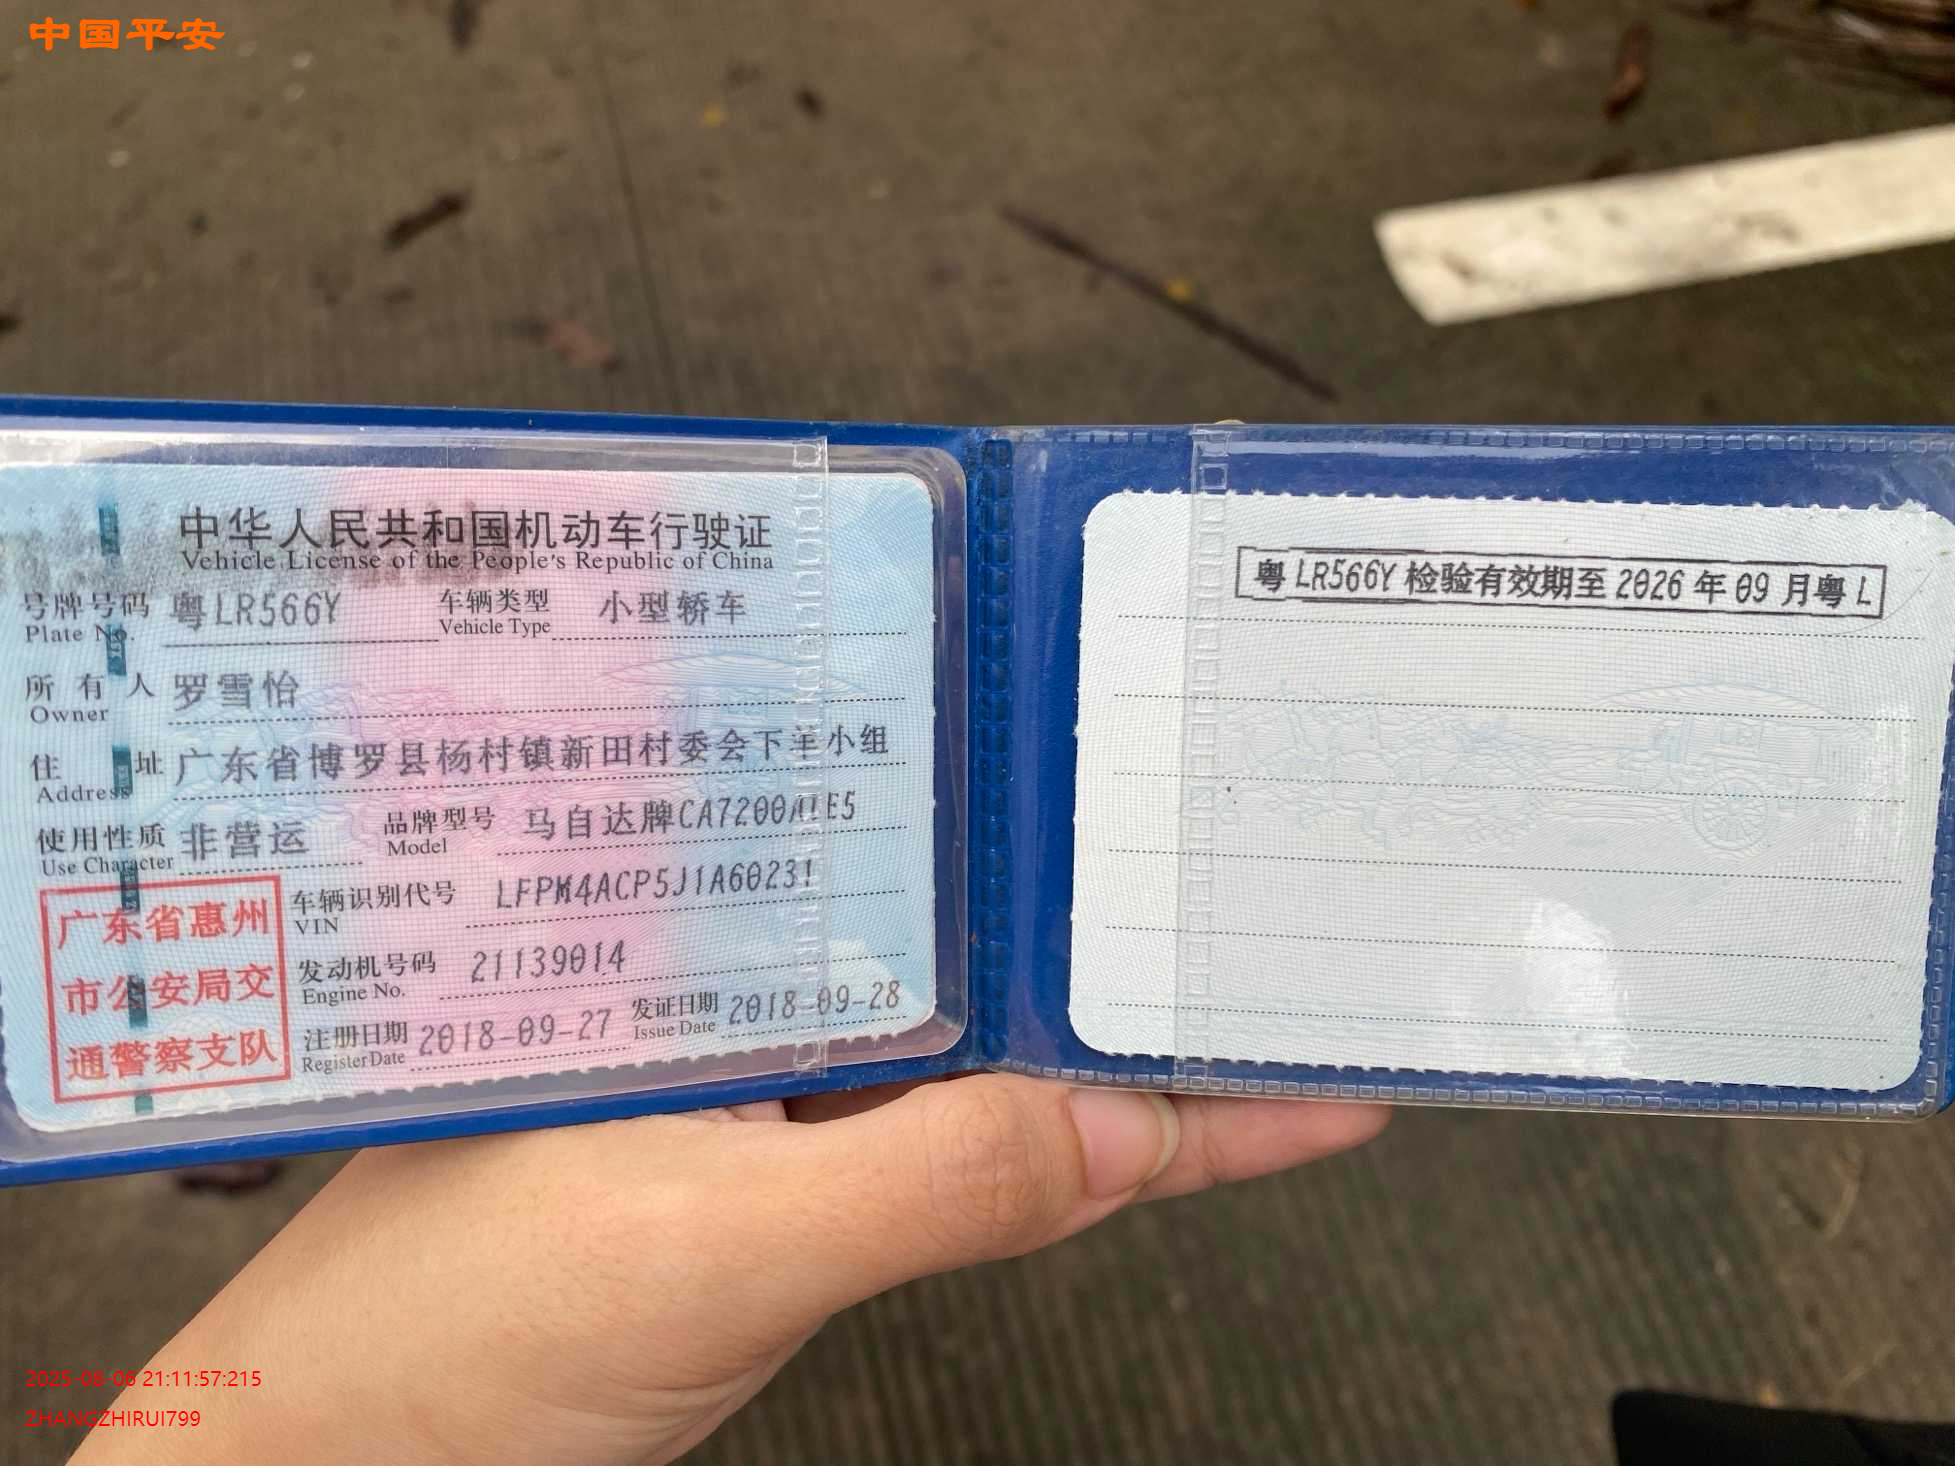 中国平安
中华人民共和国机动车行驶证
Vehicle License of the People's Republic of China
号牌号码 粤LR566Y 车辆类型 小型轿车
Plate No. Vehicle Type
所有人 罗雪怡
Owner
住址 广东省博罗县杨村镇新田村委会下羊小组
Address
使用性质 非营运 品牌型号 马自达牌CA7200ALE5
Use Character Model
车辆识别代号 LFPM4ACP5J1A60231
VIN
发动机号码 21139014
Engine No.
注册日期 2018-09-27 发证日期 2018-09-28
Register Date Issue Date
广东省惠州
市公安局交
通警察支队
粤LR566Y 检验有效期至 2026 年 09 月粤 L
2025-08-06 21:11:57:215
ZHANGZHIRUI799